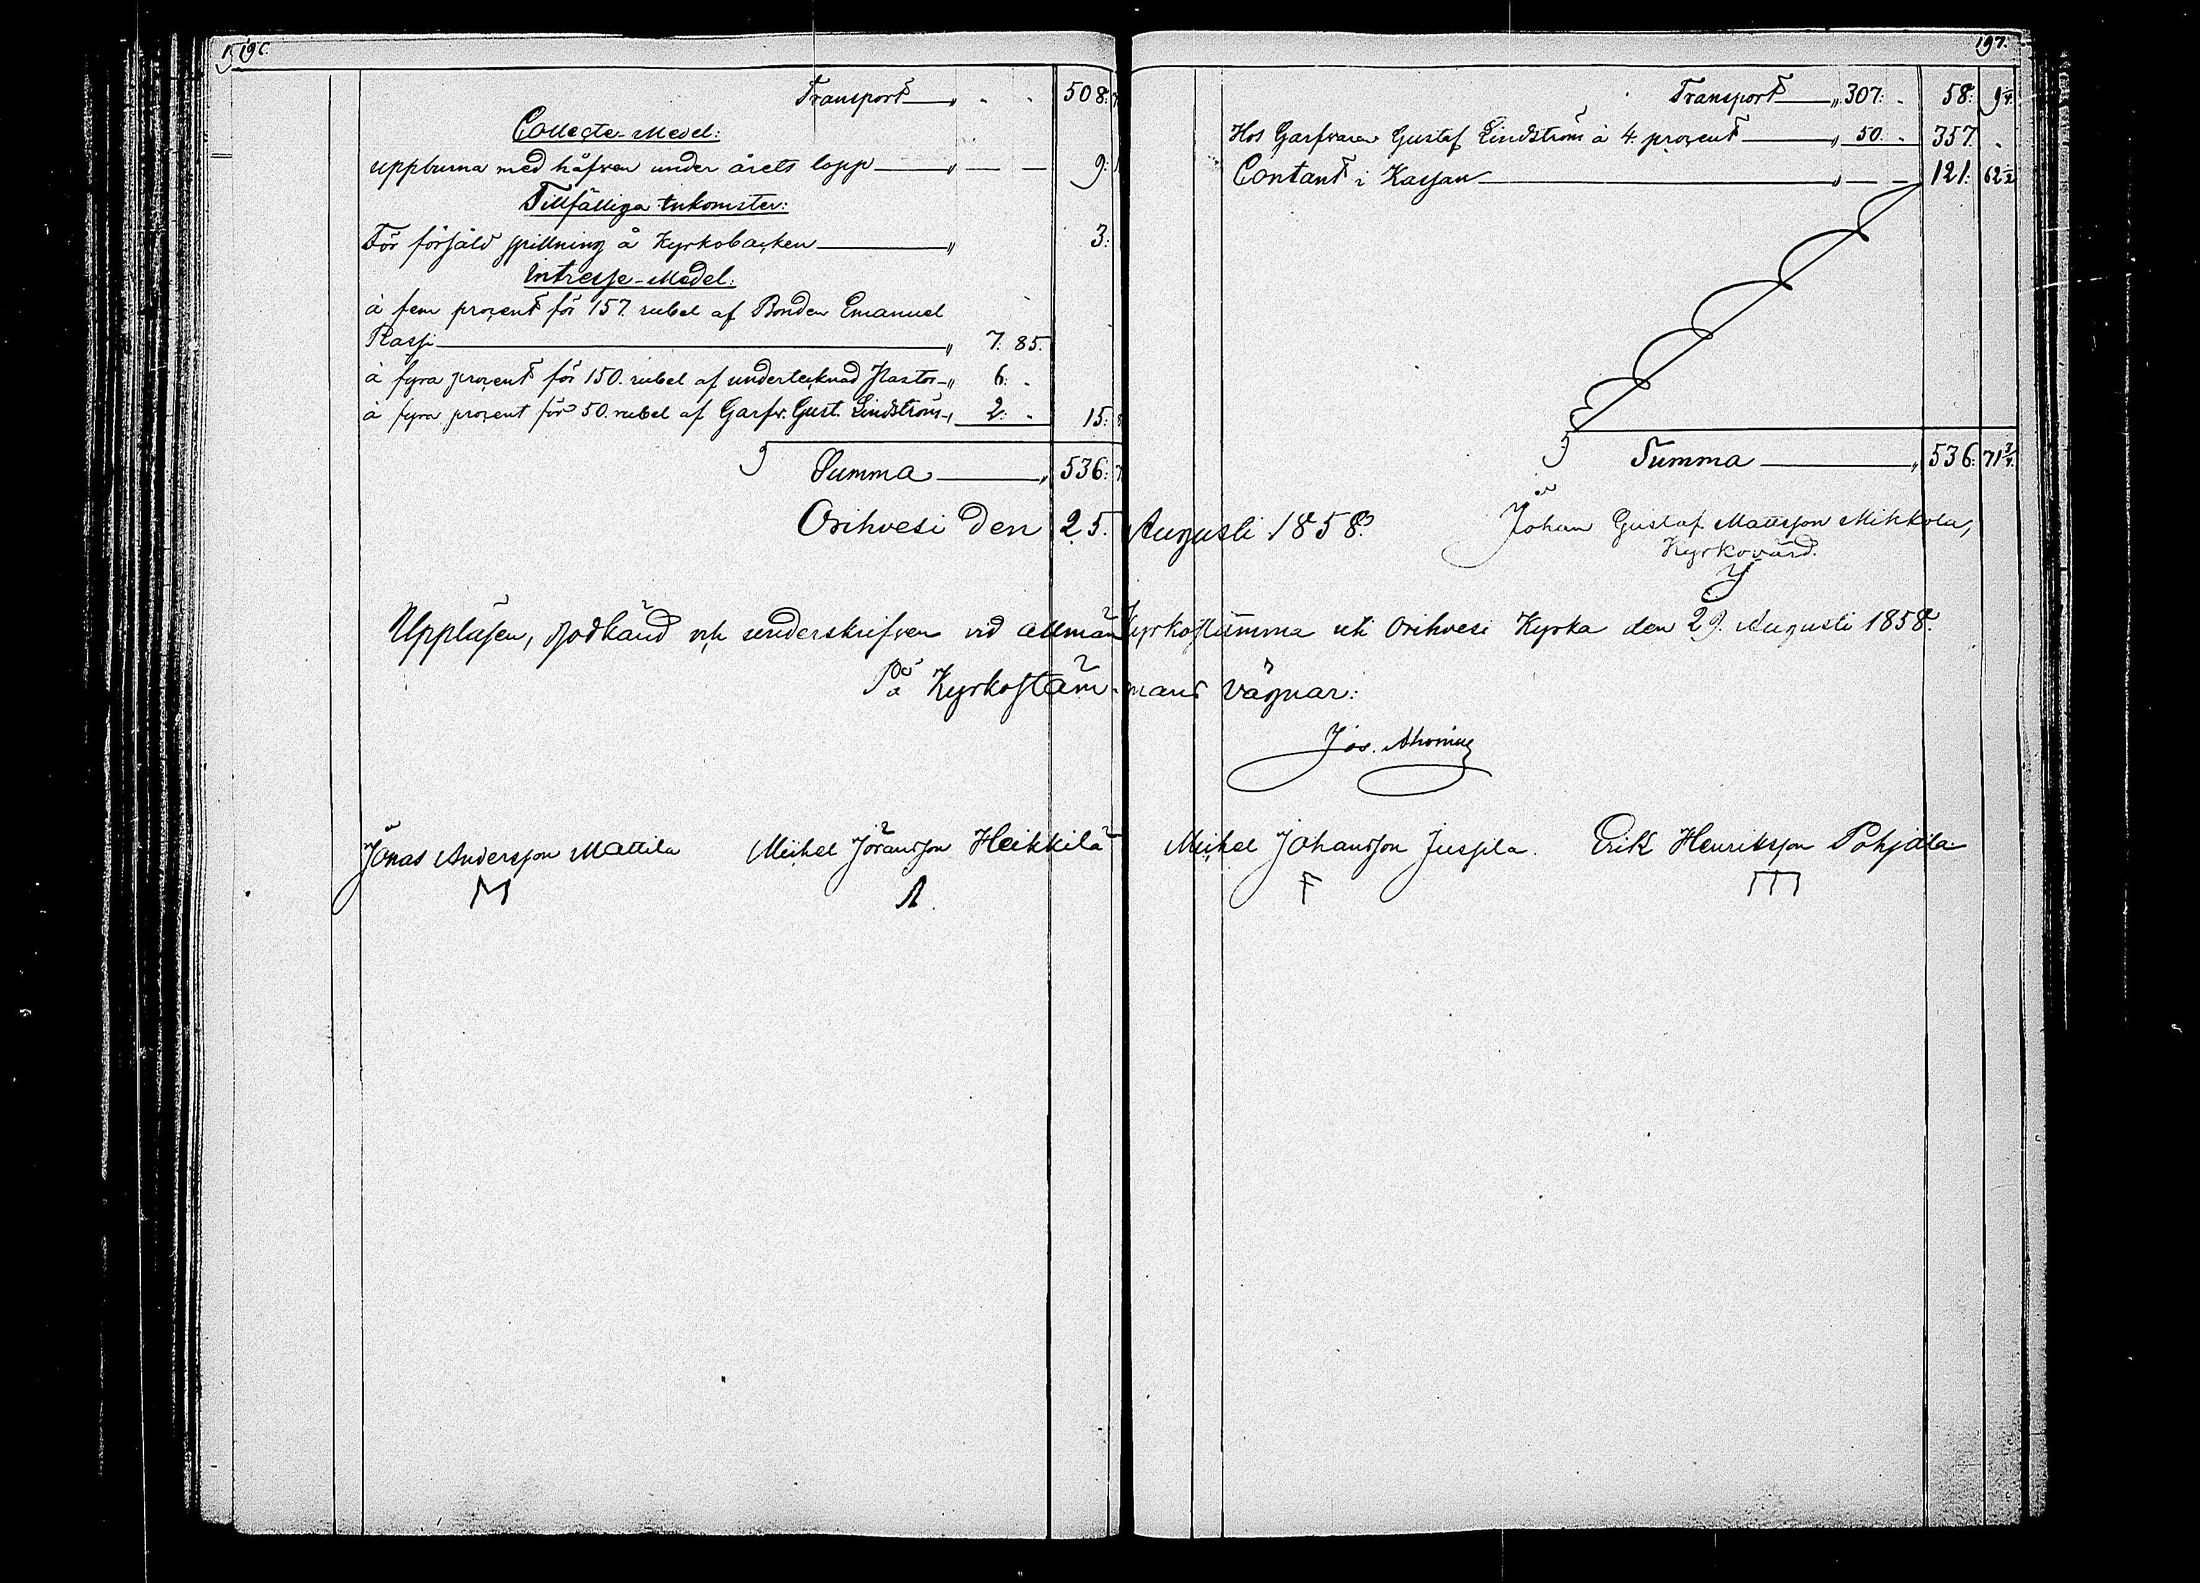 196.
Transport — „ - - 508:
Collecte-Medel:
uppburna med håfven under årets lopp — „ — — 9:
Tillfälliga Inkomster:
För försåld spillning å Kyrkobacken — „ 3:
Intresse-Medel:
à fem procent för 157. rubel af Bonden Emanuel
Rassi — „ 7. 85.
à fyra procent för 150. rubel af undertecknad Pastor — „ 6. -
à fyra procent för 50. rubel af Garfv. Gust. Lindström — „ 2. - 15:
Summa — „ 536:
197.
Transport — „ 307. - 58: 9 1/4.
Hos Garfvaren Gustaf Lindström à 4. procent — „ 50. - 357. -
Contant i Kassan — „ — — 121: 62 1/2
Summa — „ 536: 71 3/4.
Orihvesi den 25. Augusti 1858.
Johan Gustaf Mattsson Mikkola,
Kyrkovärd.
Uppläsen, godkänd och underskrifven vid allmän Kyrkostämma uti Orihvesi Kyrka den 29. Augusti 1858.
På Kyrkostämmans vägnar:
Jos. Ahonius
Jonas Andersson Mattila Michel Göransson Heikkilä Michel Johansson Jussila. Erik Henriksson Pohjala